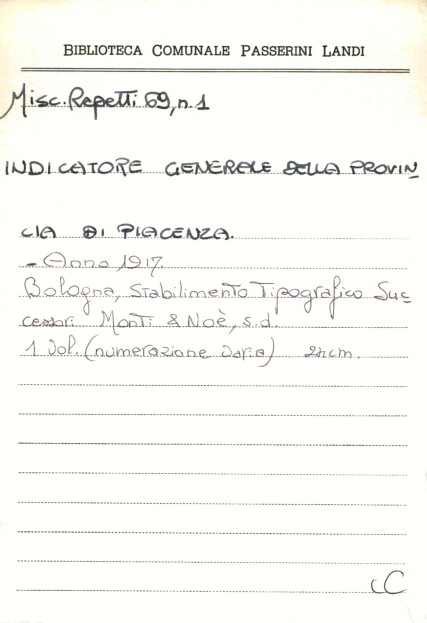 BIBLIOTECA COMUNALE PASSERINI LANDI
Misc. Repetti 69, n. 1
INDICATORE GENERALE DELLA PROVIN
CIA DI PIACENZA.
- Anno 1917.
Bologna, Stabilimento Tipografico Suc
cessori Monti & Noè, s.d.
1 Vol. (numerazione varia) cm.